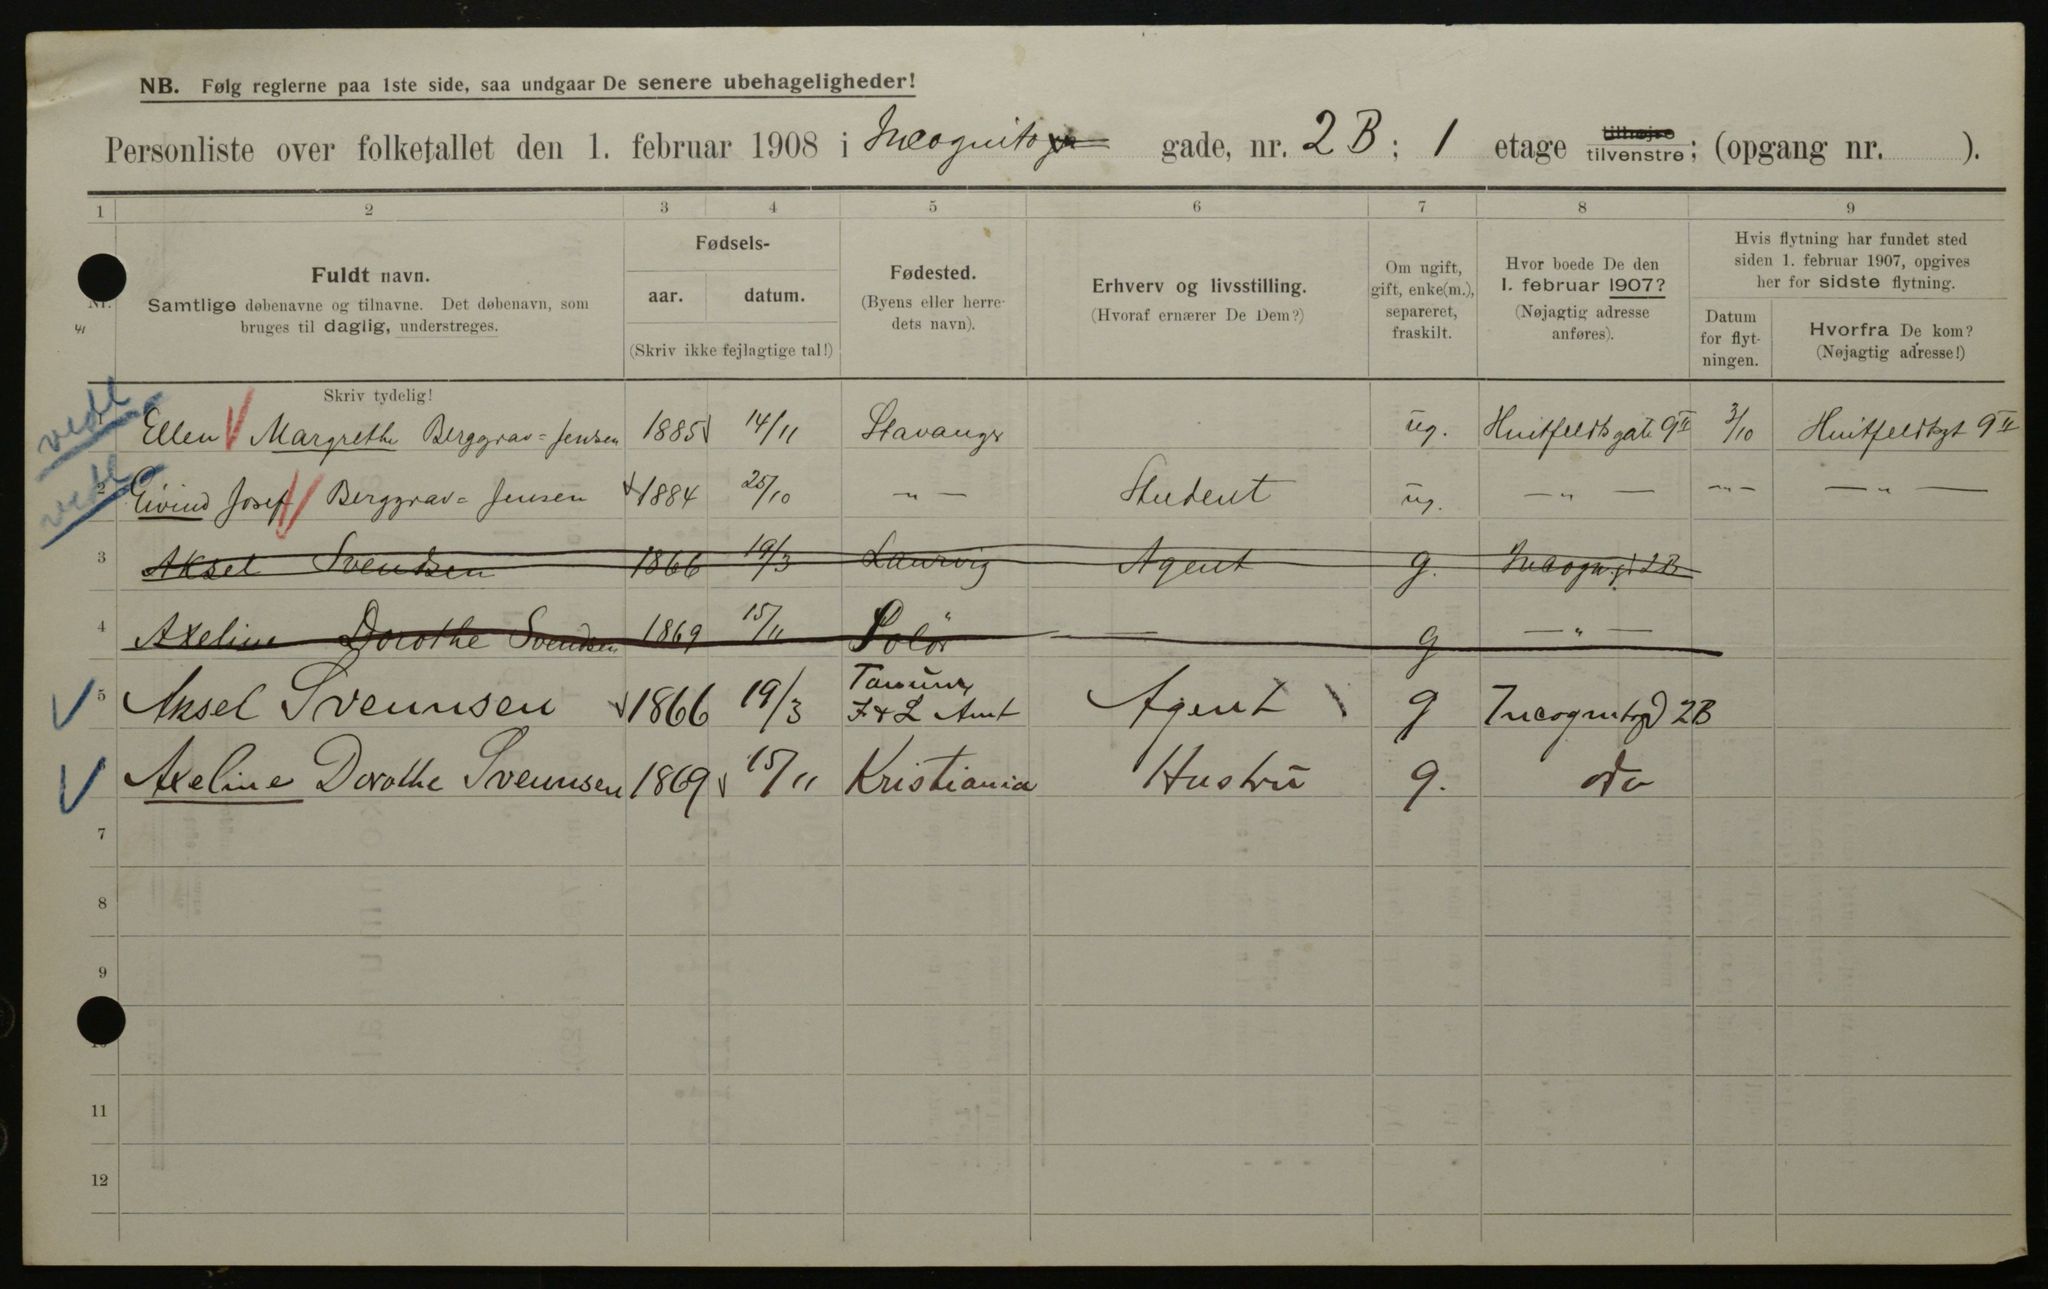 NB. Følg reglerne paa 1ste side, saa undgaar De senere ubehageligheder!
Personliste over folketallet den 1. februar 1908 i Incognito gade, nr. 2B; 1 etage tilhøjre tilvenstre; (opgang nr. ).
1 2 3 4 5 6 7 8 9
Nr.
Fuldt navn.
Samtlige døbenavne og tilnavne. Det døbenavn, som
bruges til daglig, understreges.
Skriv tydelig!
Fødsels-
aar. datum.
(Skriv ikke fejlagtige tal!)
Fødested.
(Byens eller herre-
dets navn).
Erhverv og livsstilling.
(Hvoraf ernærer De Dem?)
Om ugift,
gift, enke(m.),
separeret,
fraskilt.
Hvor boede De den
1. februar 1907?
(Nøjagtig adresse
anføres).
Hvis flytning har fundet sted
siden 1. februar 1907, opgives
her for sidste flytning.
Datum
for flyt-
ningen.
Hvorfra De kom?
(Nøjagtig adresse!)
vedl
Ellen Margrethe Berggrav=Jensen 1885 14/11 Stavanger ug. Huitfeldtsgate 9 II 3/10 Huitfeldtsgt 9 II
vedl
2 Eivind Josef Berggrav=Jensen 1884 25/10 — " — Student ug. — " — — " — — " —
3 Aksel Svendsen 1866 19/3 Laurvig Agent g. Incogn.gt 2B
4 Axeline Dorothe Svendsen 1869 15/11 Solør — g — " —
5 Aksel Svennsen 1866 19/3 Tanum, J & L Amt Agent g Incognitogd 2B
Axeline Dorothe Svennsen 1869 15/11 Kristiania Hustru g. do
7
8
9
10
11
12